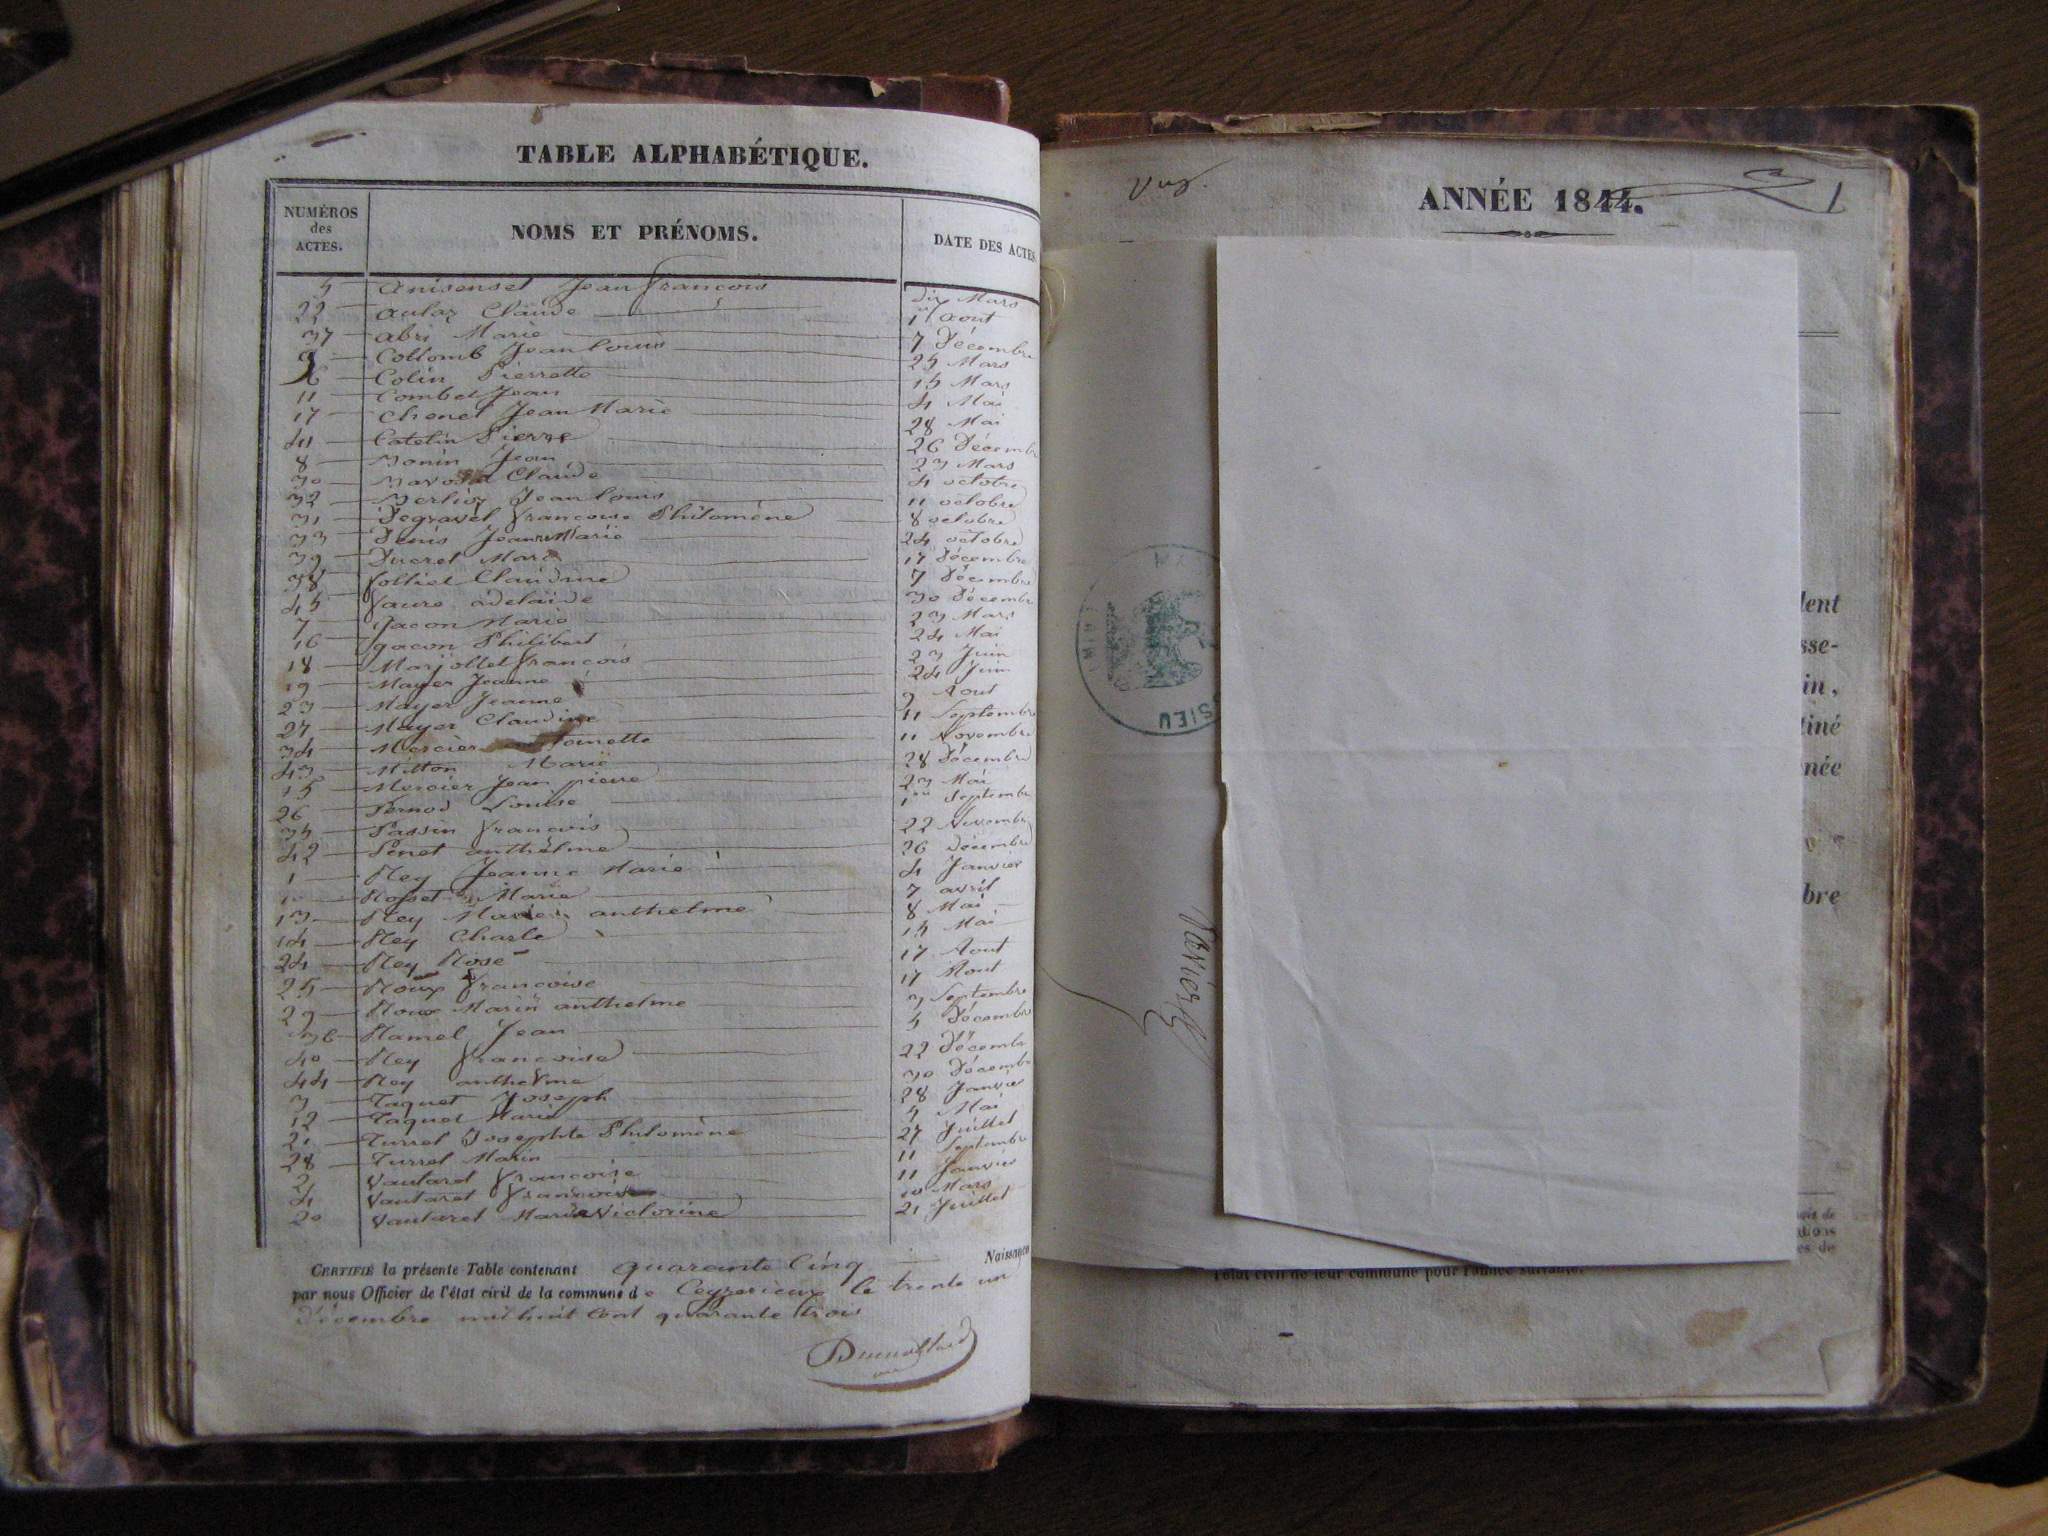 TABLE ALPHABÉTIQUE.
NUMÉROS des ACTES. NOMS ET PRÉNOMS. DATE DES ACTES.
5 Jean François dix Mars
22 Claude 1er Aout
37 Abri Marie 7 Décembre
9 Collomb Jean Louis 25 Mars
6 Colin Pierrette 15 Mars
11 Combet Jean 4 Mai
17 Chenet Jean Marie 28 Mai
41 Catelin Pierre 26 Décembre
8 Jean 23 Mars
30 Claude 4 octobre
32 Jean Louis 11 octobre
31 Degravel Françoise Philomène 8 octobre
33 Denis Jeanne Marie 24 octobre
39 Ducret Marie 17 Décembre
38 Folliet Claudine 7 Décembre
45 Faure adelaide 30 Décembre
7 Gacon Marie 23 Mars
16 gacon Philibert 24 Mai
18 Marjollet françois 23 Juin
19 Mayer Jeanne 24 Juin
23 Mayer Jeanne 9 Aout
27 Mayer Claudine 11 Septembre
34 Mercier 11 Novembre
43 Mitton Marie 28 Décembre
15 Mercier Jean pierre 23 Mai
26 Pernod Louise 1er Septembre
35 Passin François 22 Novembre
42 Penet anthelme 26 Décembre
1 Rey Jeanne Marie 4 Janvier
10 Rosset Marie 7 avril
13 Rey anthelme 8 Mai
14 Rey Charle 15 Mai
24 Rey Rose 17 Aout
25 Roux Françoise 17 Aout
29 Roux Marin anthelme 3 Septembre
36 Ramel Jean 5 Décembre
40 Rey Françoise 22 Décembre
44 Rey anthelme 30 Décembre
3 Taquet Joseph 28 Janvier
12 Taquet Marie 5 Mai
21 Turrel Josephte Philomène 27 Juillet
28 Turrel Marin 11 Septembre
2 Vautaret Françoise 11 Janvier
4 Vautaret 10 Mars
20 Vautaret Marie Victorine 21 Juillet
CERTIFIÉ la présente Table contenant quarante Cinq Naissance
par nous Officier de l'état civil de la commune de Ceyzerieux le trente un
Décembre mil huit Cent quarante trois
ANNÉE 1844.
1
MA
SIEU
dent
sse-
in,
tiné
née
bre
l'état civil de leur commune pour l'année suivante.